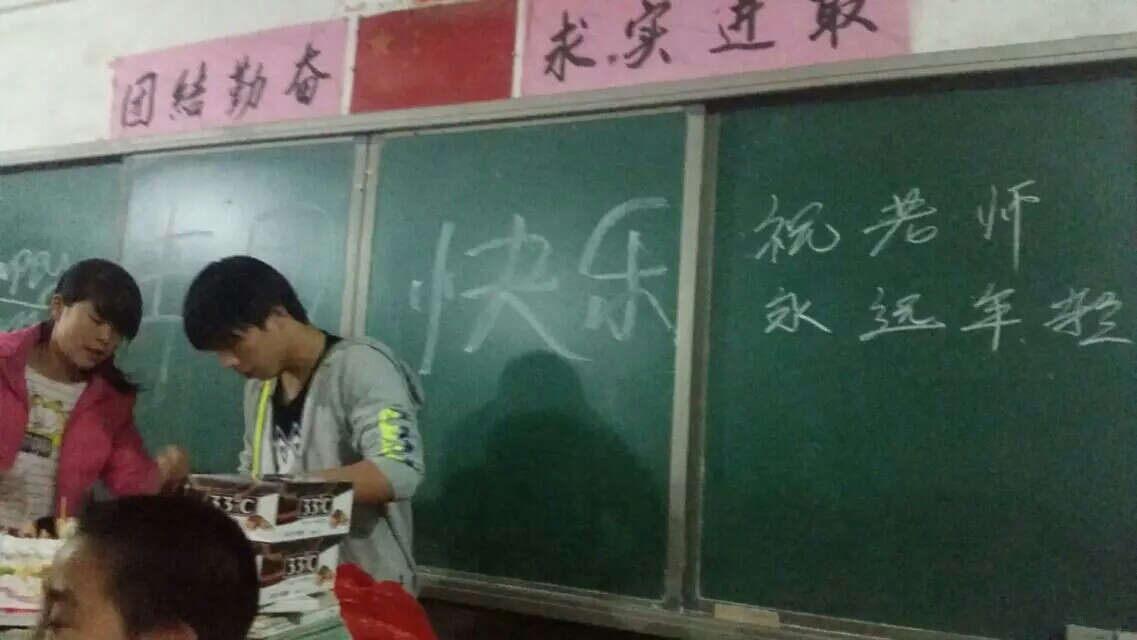 团結勤奋
求实进取
生日快乐
祝老师
永远年轻
33°C
33°C
33°C